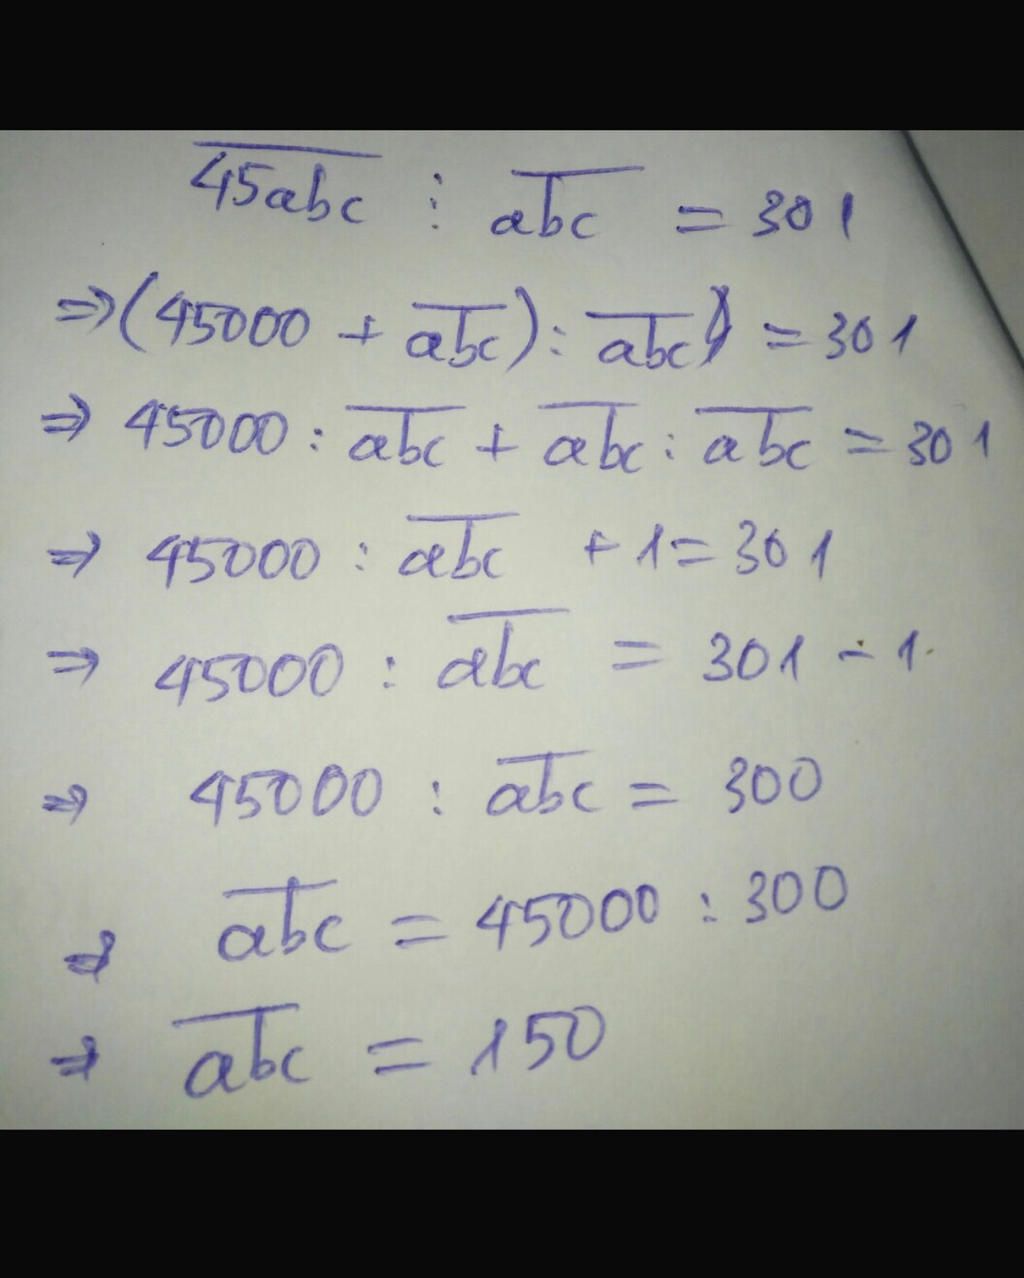 45abc : abc = 301
⇒ (45000 + abc) : abc = 301
⇒ 45000 : abc + abc : abc = 301
⇒ 45000 : abc + 1 = 301
⇒ 45000 : abc = 301 - 1
⇒ 45000 : abc = 300
⇒ abc = 45000 : 300
⇒ abc = 150